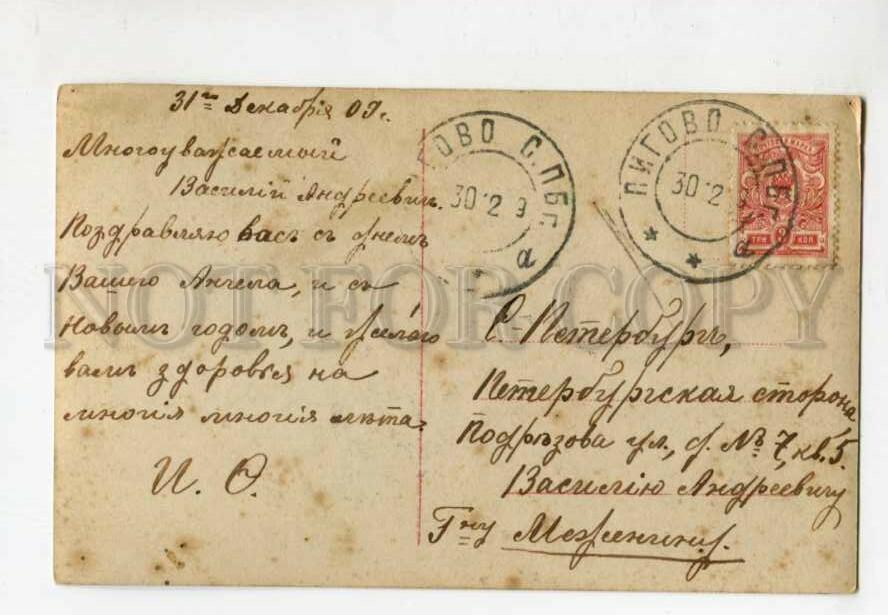 31го Декабря 09 г.
Многоуважаемый
Василий Андреевич.
Поздравляю васъ съ днемъ
Вашего Ангела, и съ
новымъ годомъ, и желаю
вамъ здоровья на
многія многія лѣта.
И. О.
ГОВО С. ПБГ.
30 12 9
а
ЛИГОВО С. ПБГ.
30 12
а
ТРИ 3 КОП
С-Петербургъ,
Петербургская сторона,
Подрѣзова ул., д. № 7, кв. 5.
Василію Андреевичу
Г-ну Меженину.
NOT FOR COPY